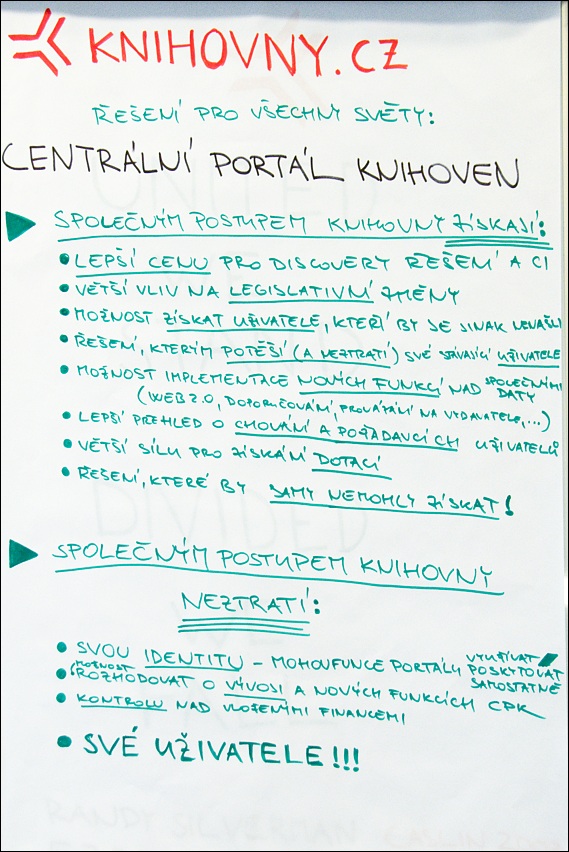 KNIHOVNY.CZ
ŘEŠENÍ PRO VŠECHNY SVĚTY:
CENTRÁLNÍ PORTÁL KNIHOVEN
SPOLEČNÝM POSTUPEM KNIHOVNY ZÍSKAJÍ:
• LEPŠÍ CENU PRO DISCOVERY ŘEŠENÍ A CI
• VĚTŠÍ VLIV NA LEGISLATIVNÍ ZMĚNY
• MOŽNOST ZÍSKAT UŽIVATELE, KTEŘÍ BY JE JINAK NENAŠLI
• ŘEŠENÍ, KTERÝM POTĚŠÍ (A NEZTRATÍ) SVÉ STÁVAJÍCÍ UŽIVATELE
• MOŽNOST IMPLEMENTACE NOVÝCH FUNKCÍ NAD SPOLEČNÝMI DATY
(WEB 2.0, DOPORUČOVÁNÍ, PROVÁTÁNÍ NA VYDAVATELE,...)
• LEPŠÍ PŘEHLED O CHOVÁNÍ A POŽADAVCÍCH UŽIVATELŮ
• VĚTŠÍ SÍLU PRO ZÍSKÁNÍ DOTACÍ
• ŘEŠENÍ, KTERÉ BY SAMY NEMOHLY ZÍSKAT!
SPOLEČNÝM POSTUPEM KNIHOVNY
NEZTRATÍ:
• SVOU IDENTITU – MOHOU FUNKCE PORTÁLU VYUŽÍVAT POSKYTOVAT SAMOSTATNĚ
• MOŽNOST ROZHODOVAT O VÝVOJI A NOVÝCH FUNKCÍCH CPK
• KONTROLU NAD VLOŽENÝMI FINANCEMI
• SVÉ UŽIVATELE!!!